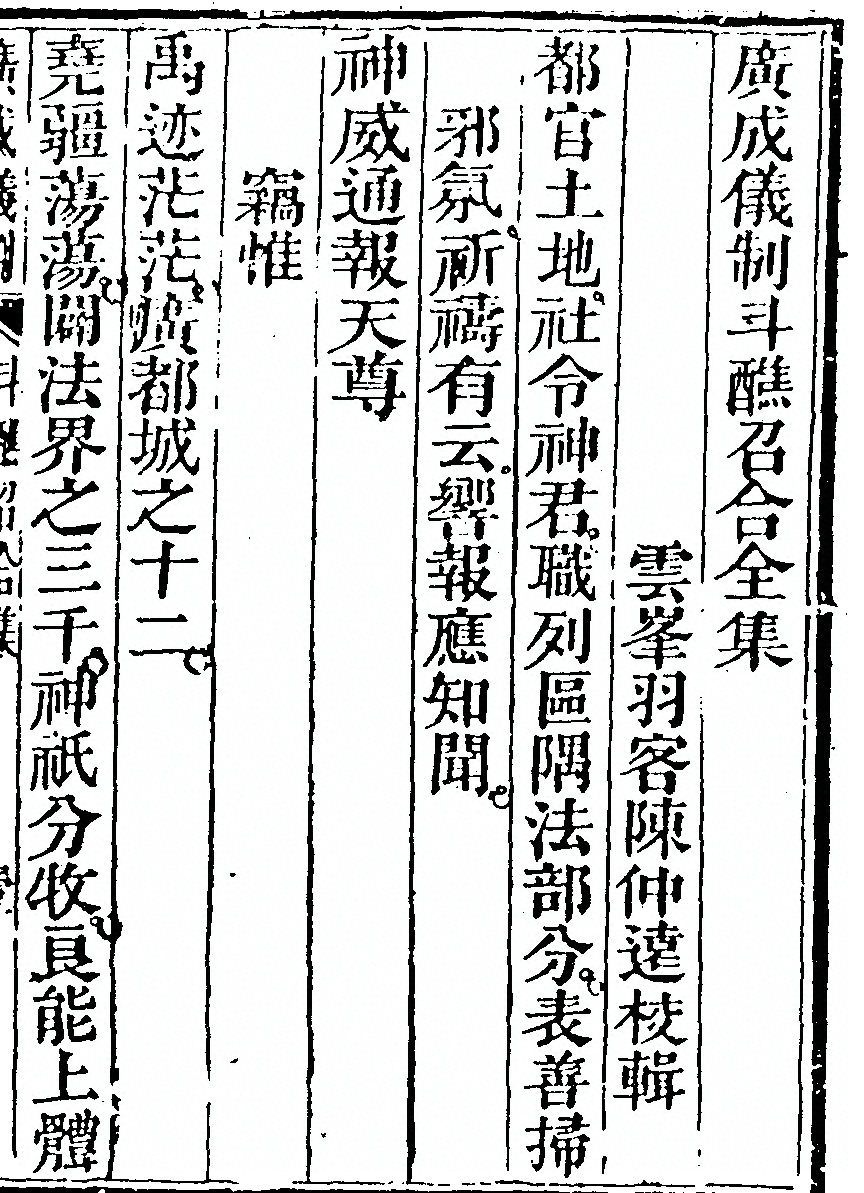 廣成儀制斗醮召合全集
雲峯羽客陳仲遠校輯
都官土地社令神君職列區隅法部分表善掃
邪氛祈禱有云響報應知聞
神威通報天尊
竊惟
禹迹茫茫曠都城之十二
堯疆蕩蕩闢法界之三千神祇分收良能上體